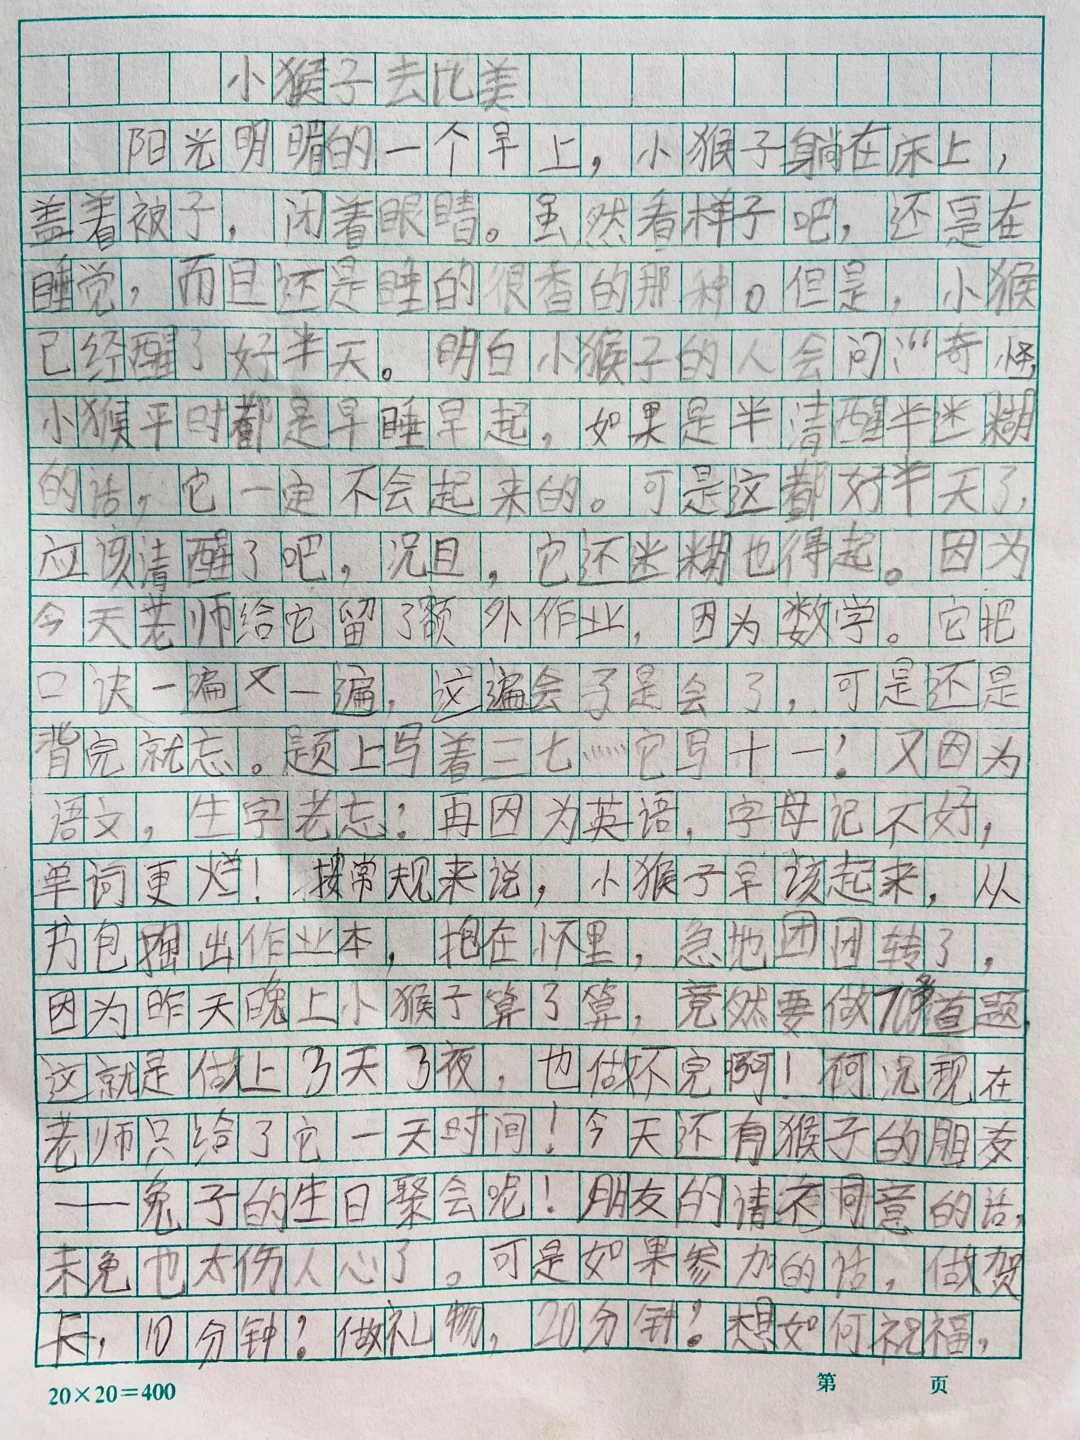 小猴子去比美
阳光明媚的一个早上，小猴子躺在床上，
盖着被子，闭着眼睛。虽然看样子吧，还是在
睡觉，而且还是睡的很香的那种。但是，小猴
已经醒了好半天。明白小猴子的人会问：“奇怪，
小猴平时都是早睡早起，如果是半清醒半迷糊
的话，它一定不会起来的。可是这都好半天了，
应该清醒了吧，况且，它还迷糊也得起。因为
今天老师给它留了额外作业，因为数学。它把
口诀一遍又一遍，这遍会了是会了，可是还是
背完就忘。题上写着三七……它写十一！又因为
语文，生字老忘！再因为英语，字母记不好，
单词更烂！按常规来说，小猴子早该起来，从
书包掏出作业本，抱在怀里，急地团团转了，
因为昨天晚上小猴子算了算，竟然要做70多道题，
这就是做上3天3夜，也做不完啊！何况现在
老师只给了它一天时间！今天还有猴子的朋友
——兔子的生日聚会呢！朋友的请不同意的话，
未免也太伤人心了。可是如果参加的话，做贺
卡，10分钟！做礼物，20分钟！想如何祝福，
20×20=400
第 页